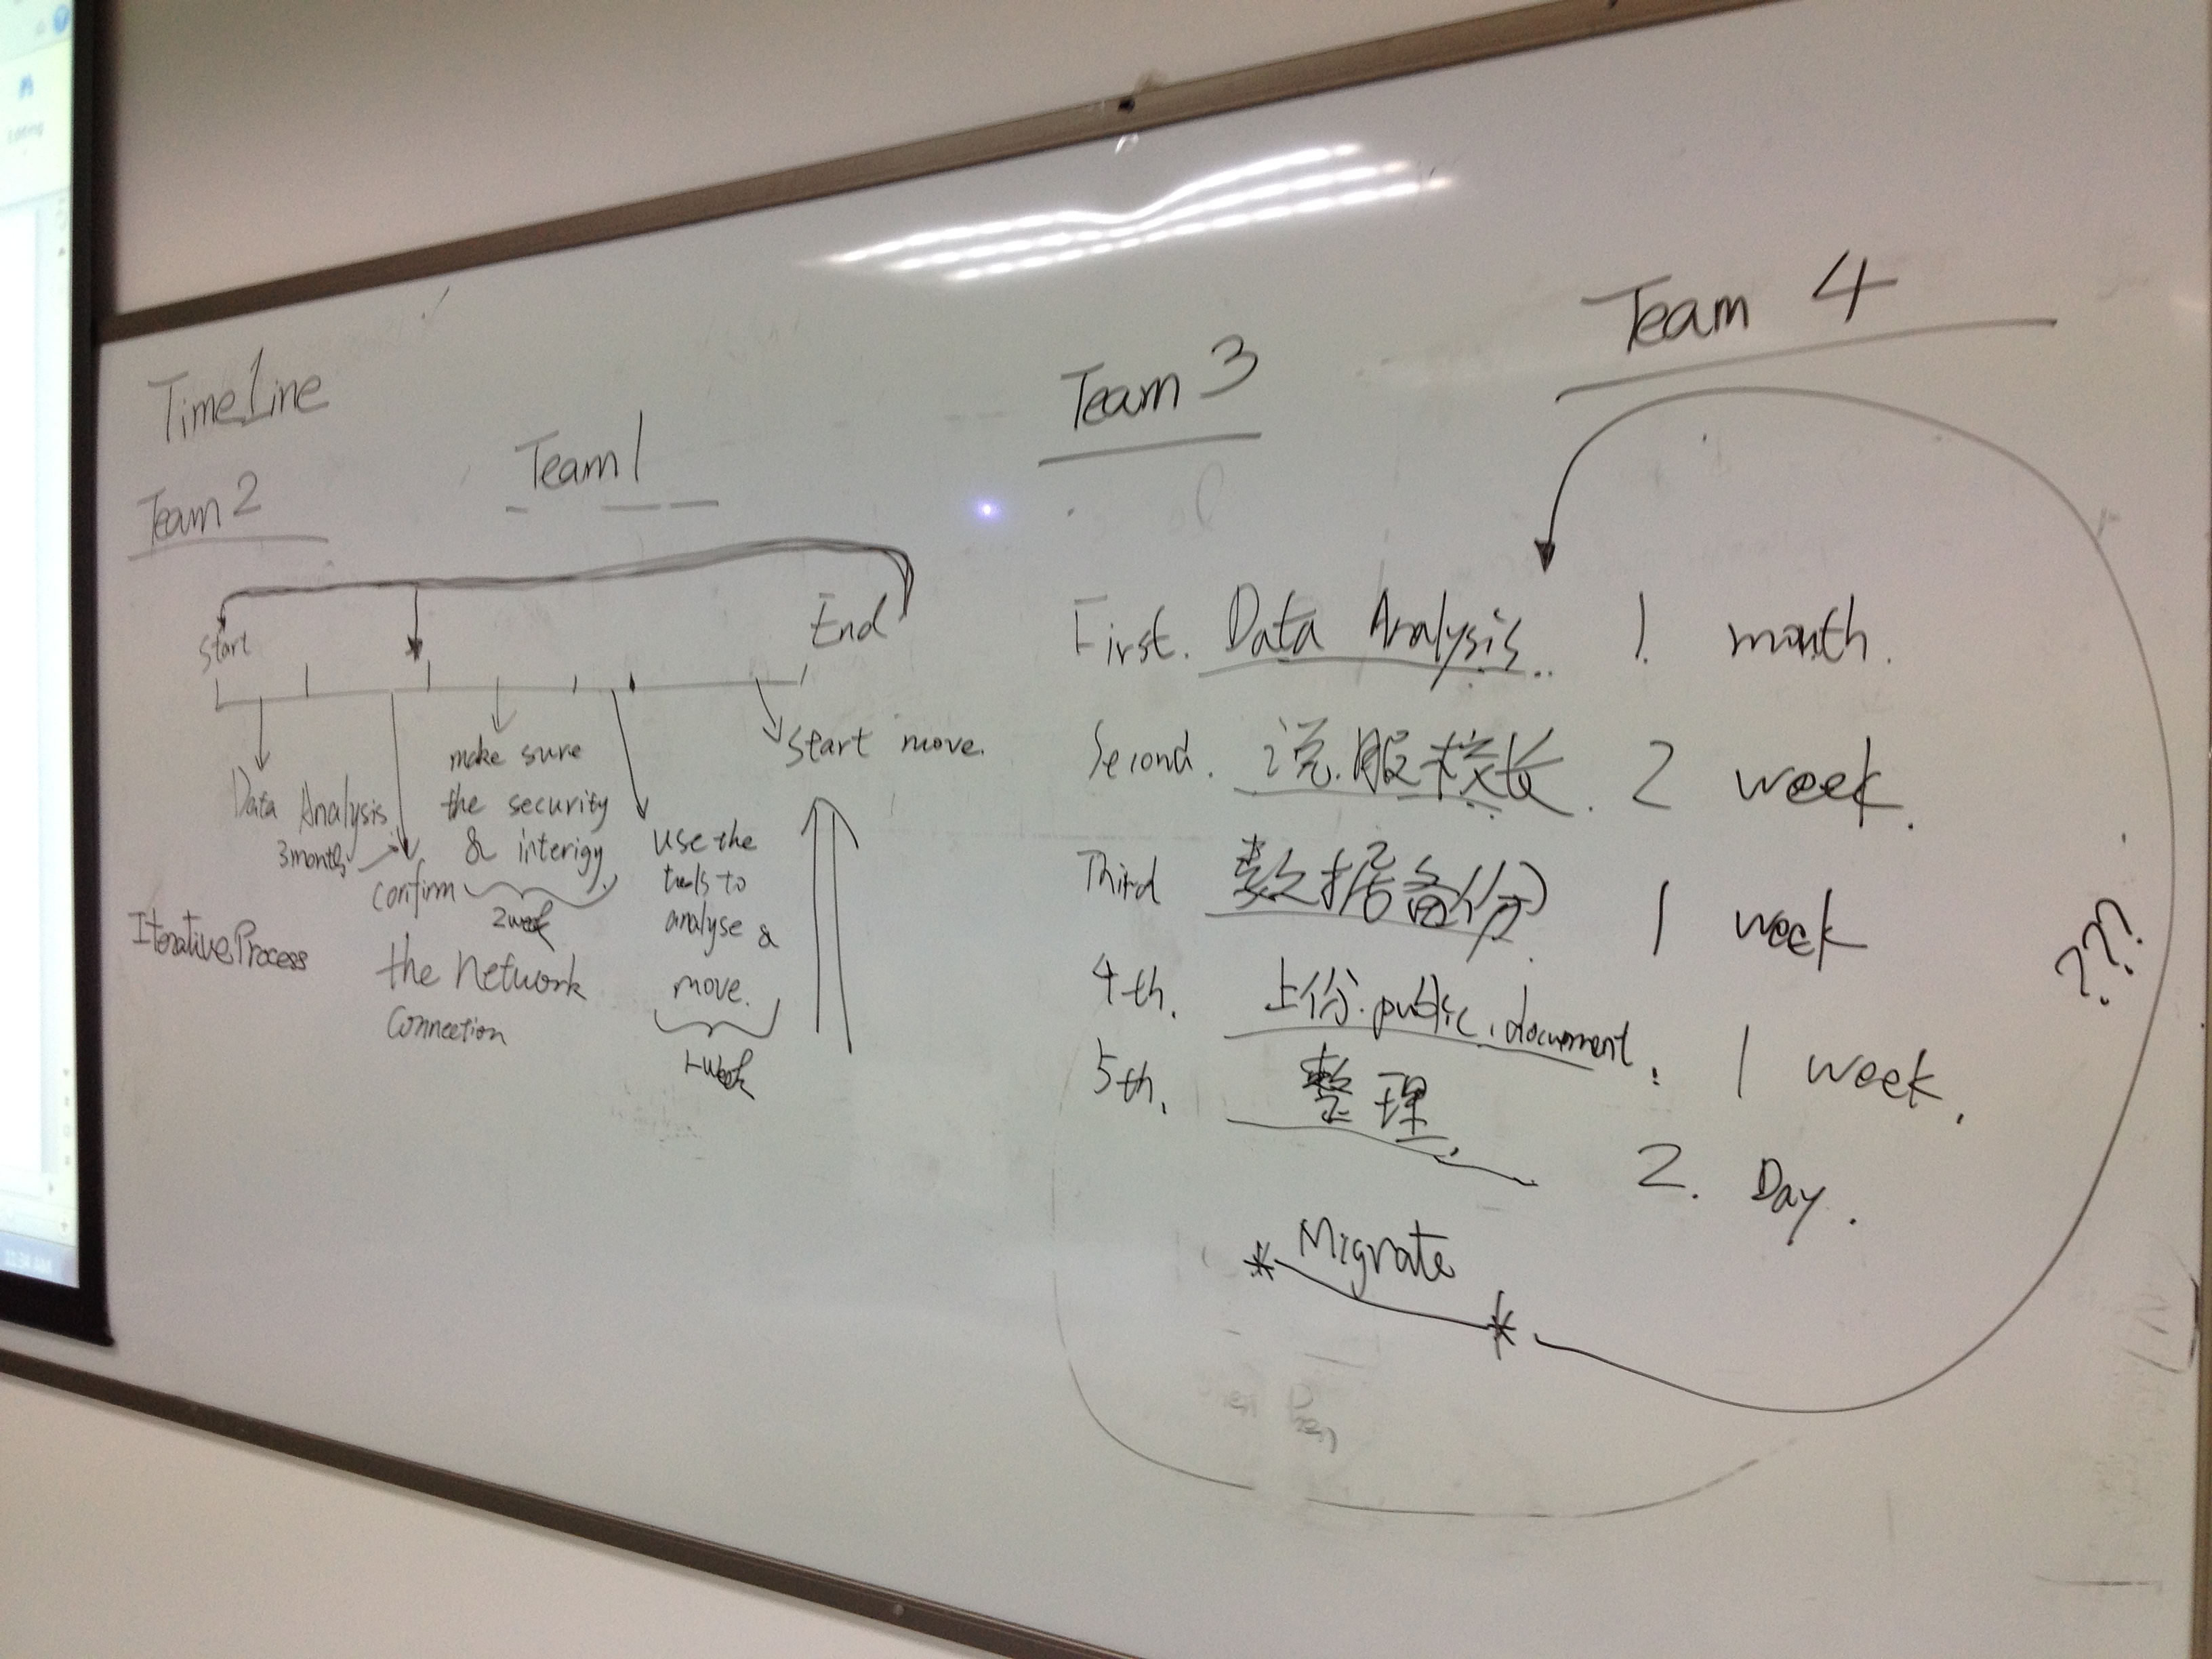 Editing
TimeLine
Team 2
Team 1
Start
End
Data Analysis
3month
confirm
the Network
Connection
make sure
the security
& interigy
2week
use the
tools to
analyse &
move.
1-week
Start move.
Iterative Process
Team 3
Team 4
First. Data Analysis. 1 month.
Second. 说服校长. 2 week.
Third 数据备份 1 week
4th. 上份 public document. 1 week.
5th. 整理. 2. Day.
* Migrate *
???
11:34 AM